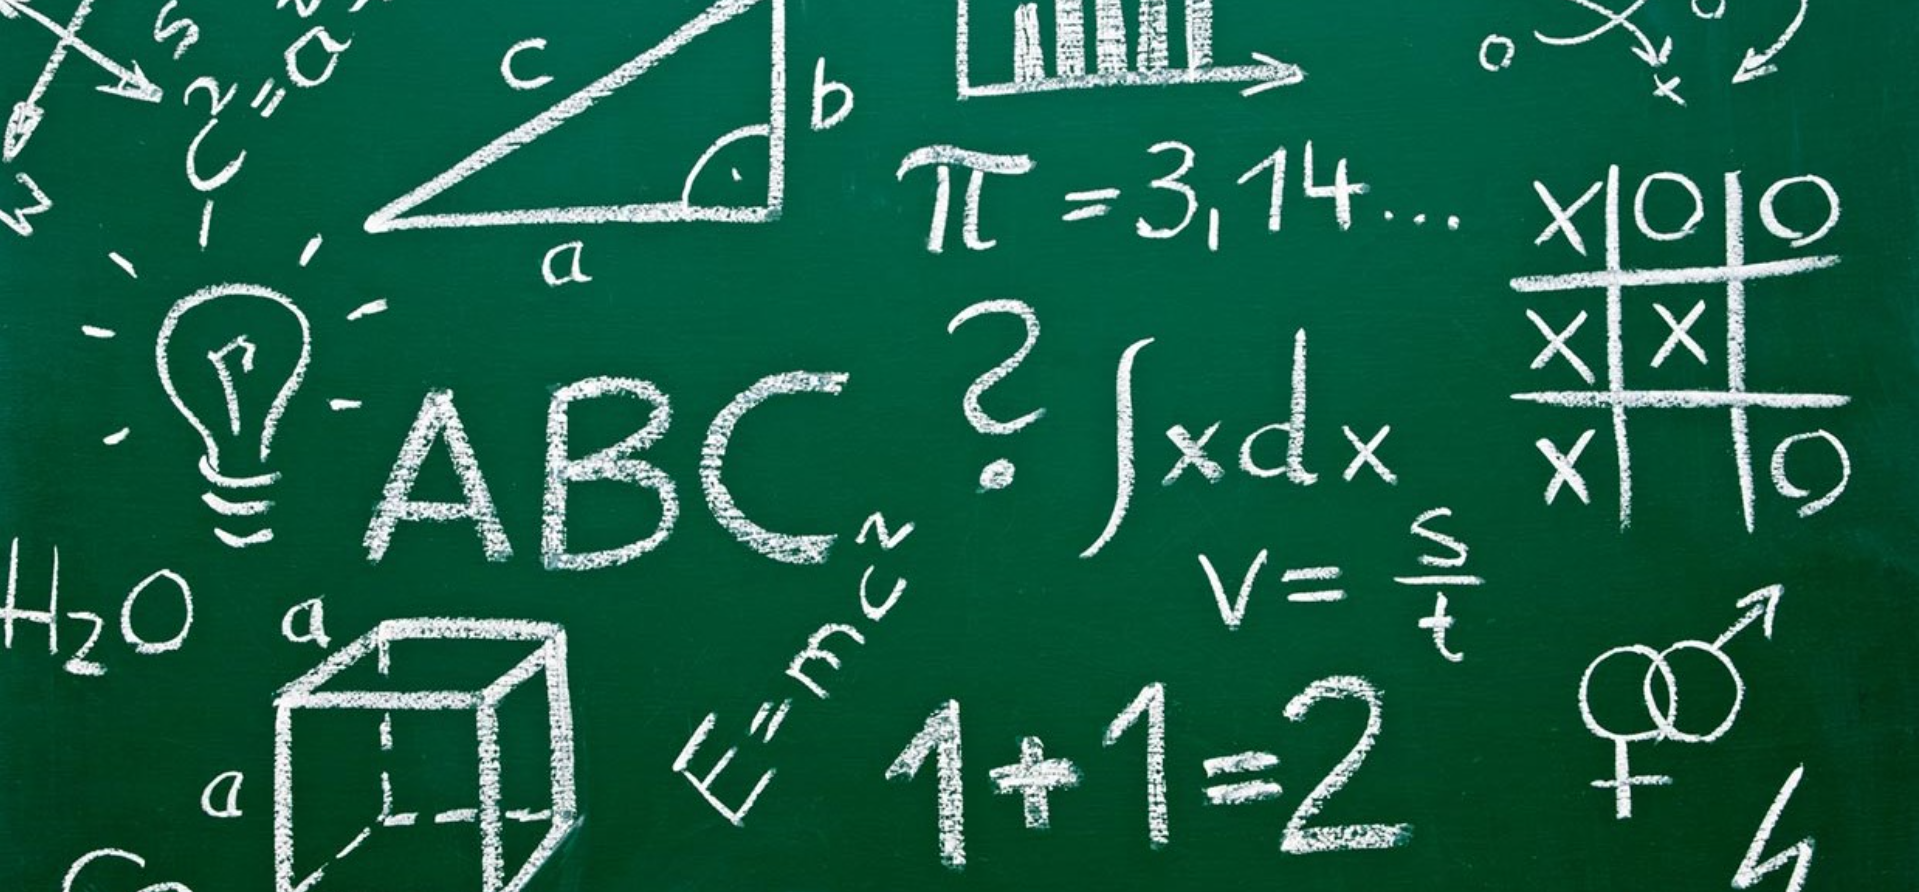 s
c² = a
c
b
a
o
x
π = 3,14...
X O O
X X
X O
?
ABC
∫xdx
v = s/t
H₂O
a
a
E=mc²
1+1=2